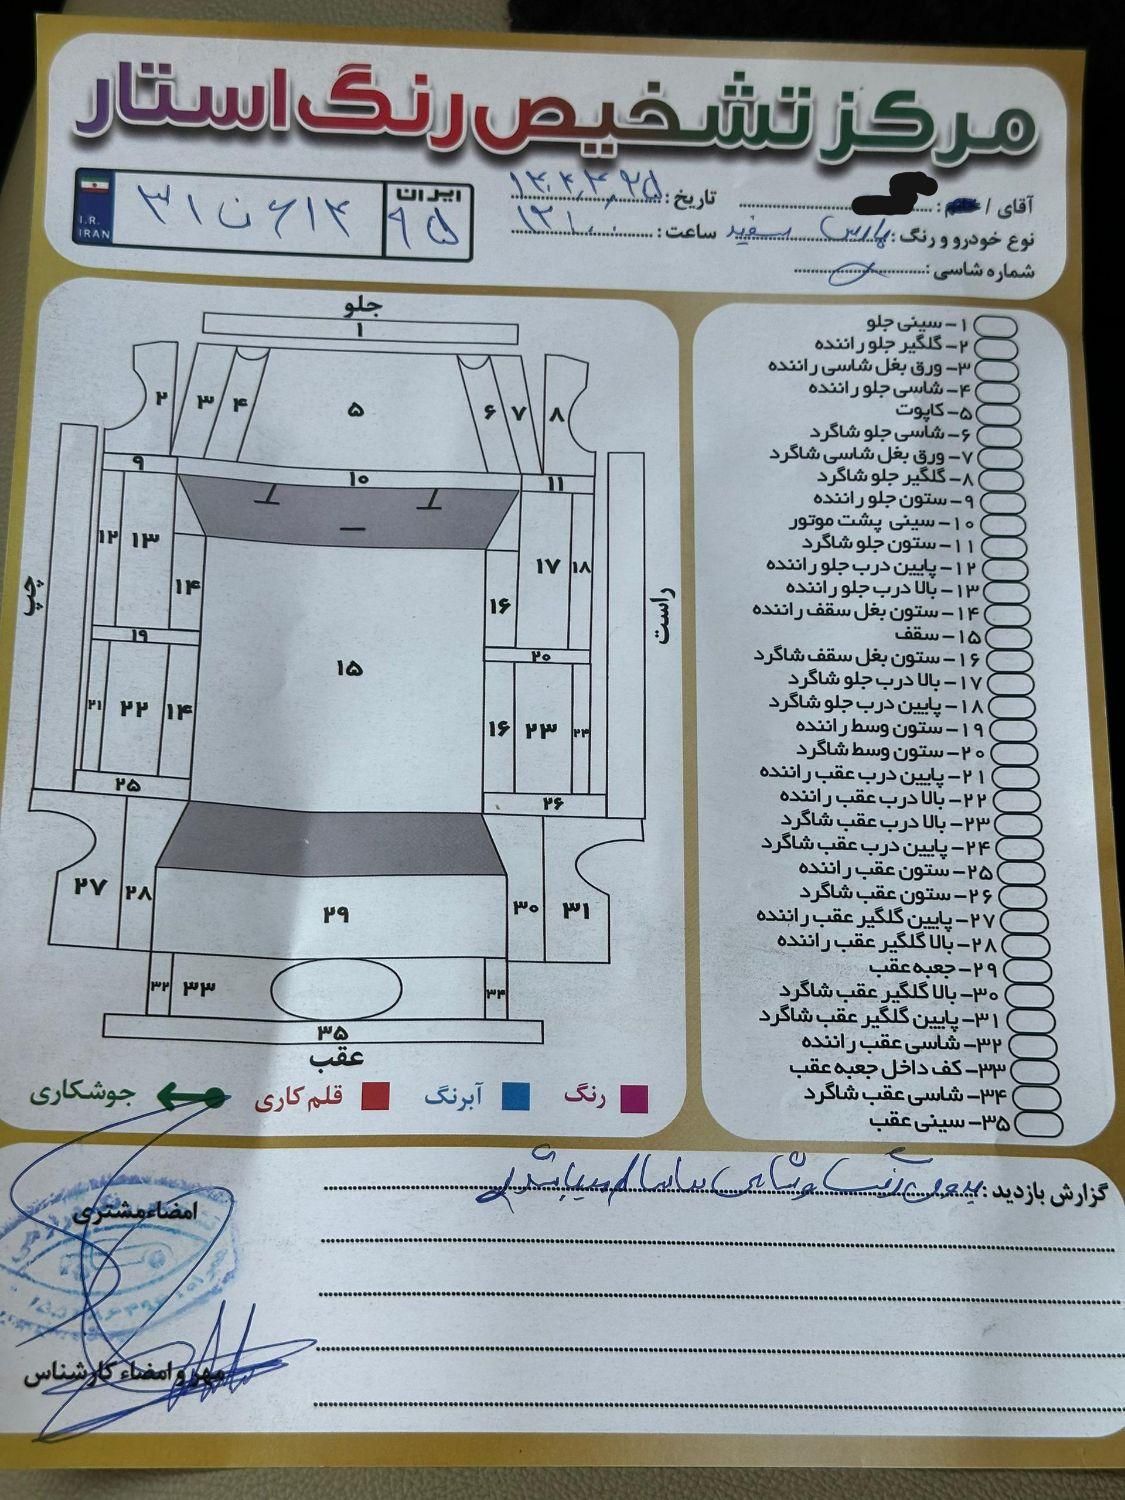 مرکز تشخیص رنگ استار
آقای / خانم :
نوع خودرو و رنگ : پارس سفید
شماره شاسی :
تاریخ : ۱۴۰۴,۳,۲۵
ساعت : ۱۲
I.R.
IRAN
ایران
۹۵
جلو
۱
۲ ۳ ۴ ۵ ۶ ۷ ۸
۹ ۱۰ ۱۱
۱۲ ۱۳ ۱۴ ۱۶ ۱۷ ۱۸
۱۹ ۱۵ ۲۰
۲۱ ۲۲ ۱۴ ۱۶ ۲۳ ۲۴
۲۵ ۲۶
۲۷ ۲۸ ۲۹ ۳۰ ۳۱
۳۲ ۳۳ ۳۴
۳۵
عقب
چپ
راست
رنگ
آبرنگ
قلم کاری
جوشکاری
۱- سینی جلو
۲- گلگیر جلو راننده
۳- ورق بغل شاسی راننده
۴- شاسی جلو راننده
۵- کاپوت
۶- شاسی جلو شاگرد
۷- ورق بغل شاسی شاگرد
۸- گلگیر جلو شاگرد
۹- ستون جلو راننده
۱۰- سینی پشت موتور
۱۱- ستون جلو شاگرد
۱۲- پایین درب جلو راننده
۱۳- بالا درب جلو راننده
۱۴- ستون بغل سقف راننده
۱۵- سقف
۱۶- ستون بغل سقف شاگرد
۱۷- بالا درب جلو شاگرد
۱۸- پایین درب جلو شاگرد
۱۹- ستون وسط راننده
۲۰- ستون وسط شاگرد
۲۱- پایین درب عقب راننده
۲۲- بالا درب عقب راننده
۲۳- بالا درب عقب شاگرد
۲۴- پایین درب عقب شاگرد
۲۵- ستون عقب راننده
۲۶- ستون عقب شاگرد
۲۷- پایین گلگیر عقب راننده
۲۸- بالا گلگیر عقب راننده
۲۹- جعبه عقب
۳۰- بالا گلگیر عقب شاگرد
۳۱- پایین گلگیر عقب شاگرد
۳۲- شاسی عقب راننده
۳۳- کف داخل جعبه عقب
۳۴- شاسی عقب شاگرد
۳۵- سینی عقب
گزارش بازدید : بدون رنگ و شاسی ها سالم میباشد
امضاء مشتری
مهر و امضاء کارشناس